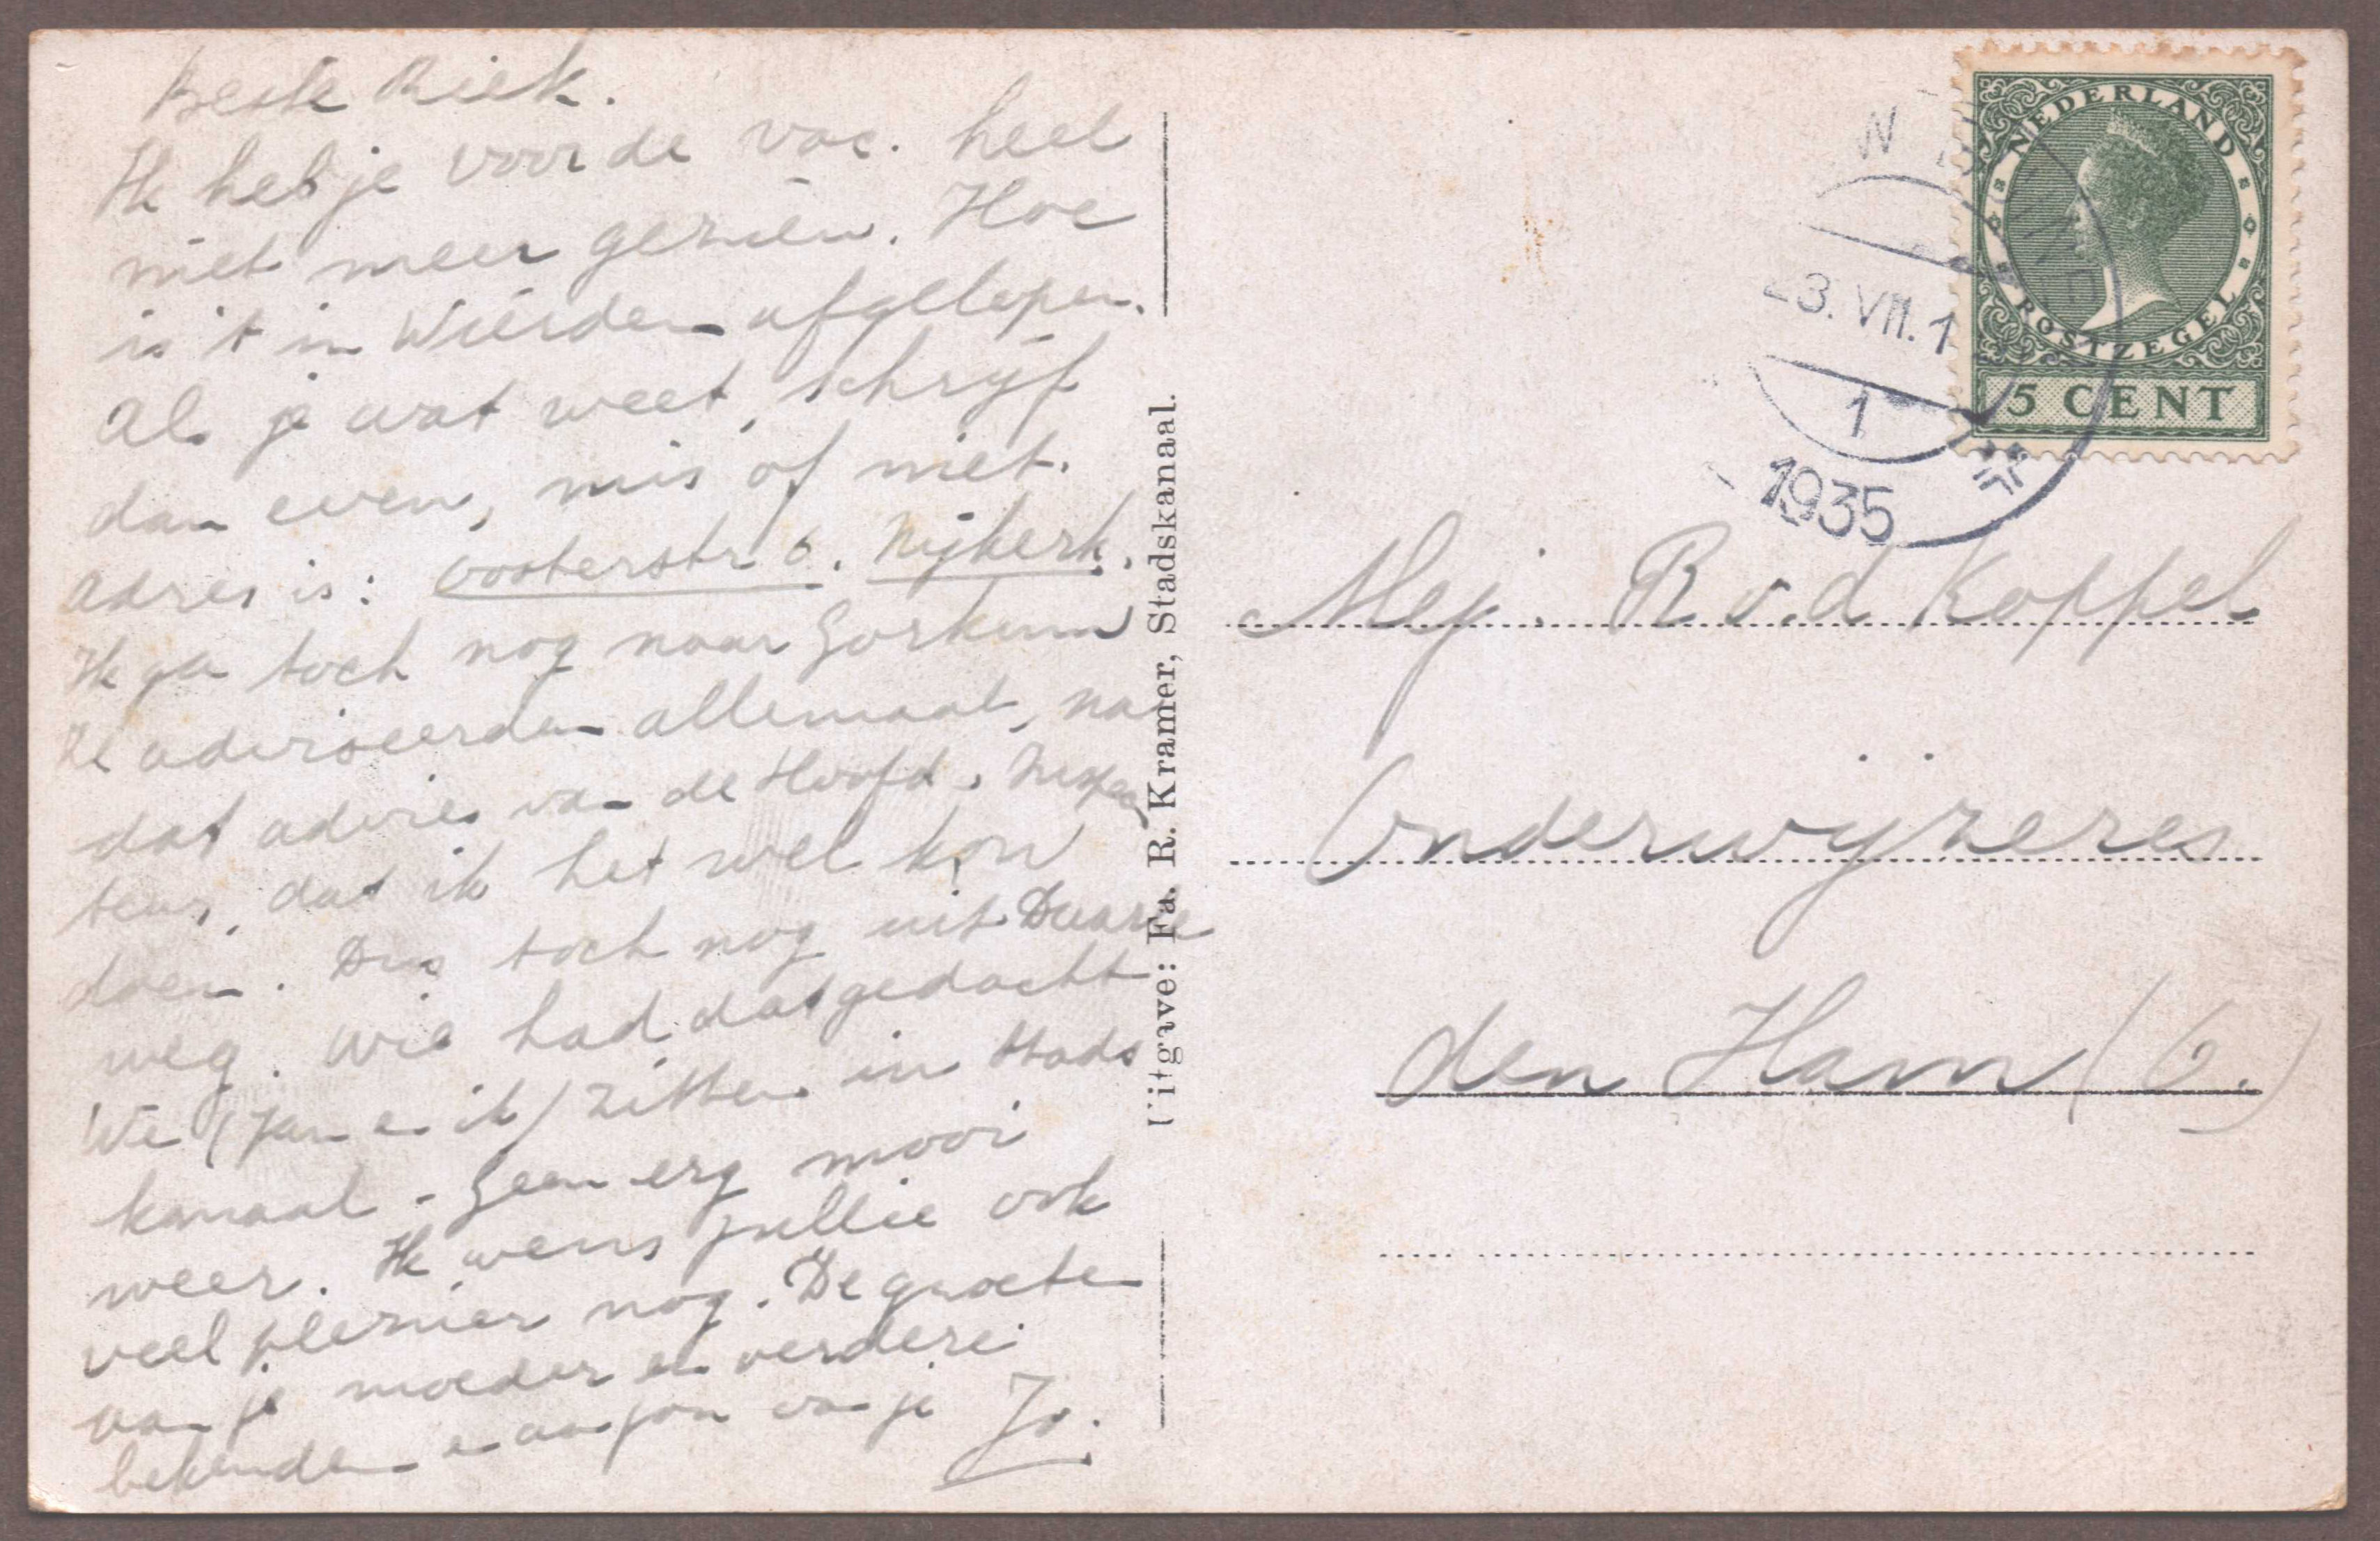 Beste Riek.
Ik heb je voor de vac. heel
niet meer gezien. Hoe
is 't in Wierden afgelopen.
Als je wat weet, schrijf
dan even, mis of niet.
Adres is: Oosterstr 6. Nijkerk.
Ik ga toch nog naar Gorkum
Ze adviseerden allemaal, na
dat advies van de Hoofd. Inspec
teur, dat ik het wel kon
doen. Dus toch nog uit
weg. Wie had dat gedacht
We (Jan en ik) zitten in Stads
kanaal - Geen erg mooi
weer. Ik wens jullie ook
veel plezier nog. De groeten
van je moeder en verdere
bekenden en aan jou van je Jo.
Uitgave: Fa. R. Kramer, Stadskanaal.
NEDERLAND
POSTZEGEL
5 CENT
23. VII. 1
1
1935
Mej. R v.d Koppel
Onderwijzeres
den Ham (O.)